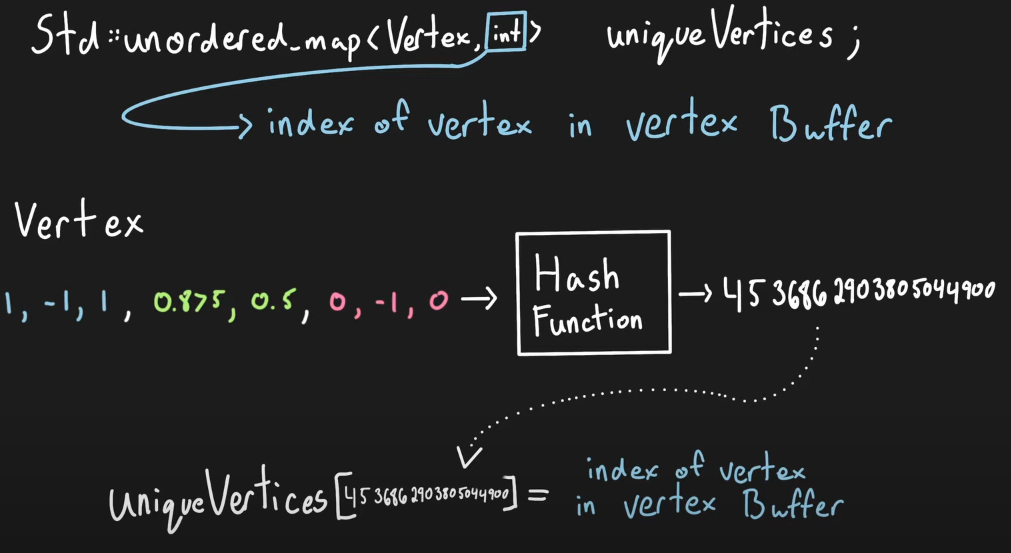 Std::unordered_map<Vertex, int> uniqueVertices;
index of vertex in vertex Buffer
Vertex
1, -1, 1, 0.875, 0.5, 0, -1, 0
Hash
Function
4536862903805044900
uniqueVertices[4536862903805044900] =
index of vertex
in vertex Buffer